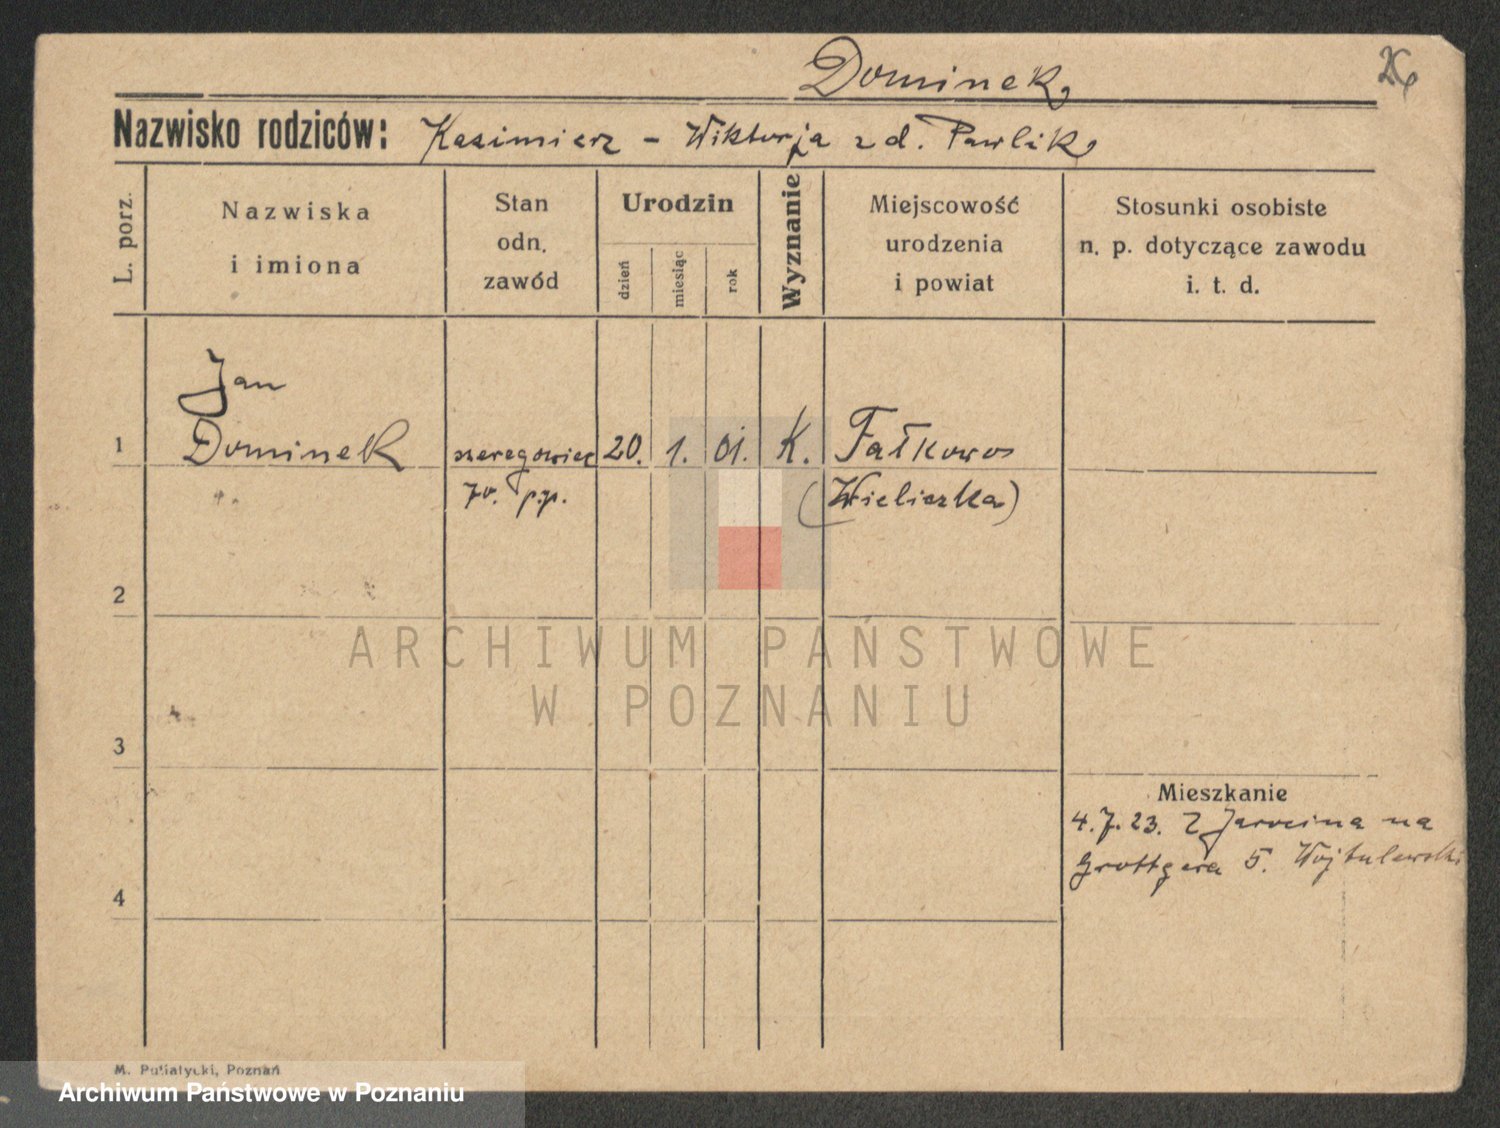 Dominek
26
Nazwisko rodziców: Kazimierz - Wiktorja z d. Pawlik
L. porz.
Nazwiska
i imiona
Stan
odn.
zawód
Urodzin
dzień
miesiąc
rok
Wyznanie
Miejscowość
urodzenia
i powiat
Stosunki osobiste
n. p. dotyczące zawodu
i. t. d.
Jan
1 Dominek szeregowiec 20. 1. 01. K. Fałkowo
70. p.p. (Wieliczka)
2
ARCHIWUM PAŃSTWOWE
W POZNANIU
3
Mieszkanie
4.7.23. Z Jarocina na
Grottgera 5. Wojtulewski
4
M. Putiatycki, Poznań
Archiwum Państwowe w Poznaniu